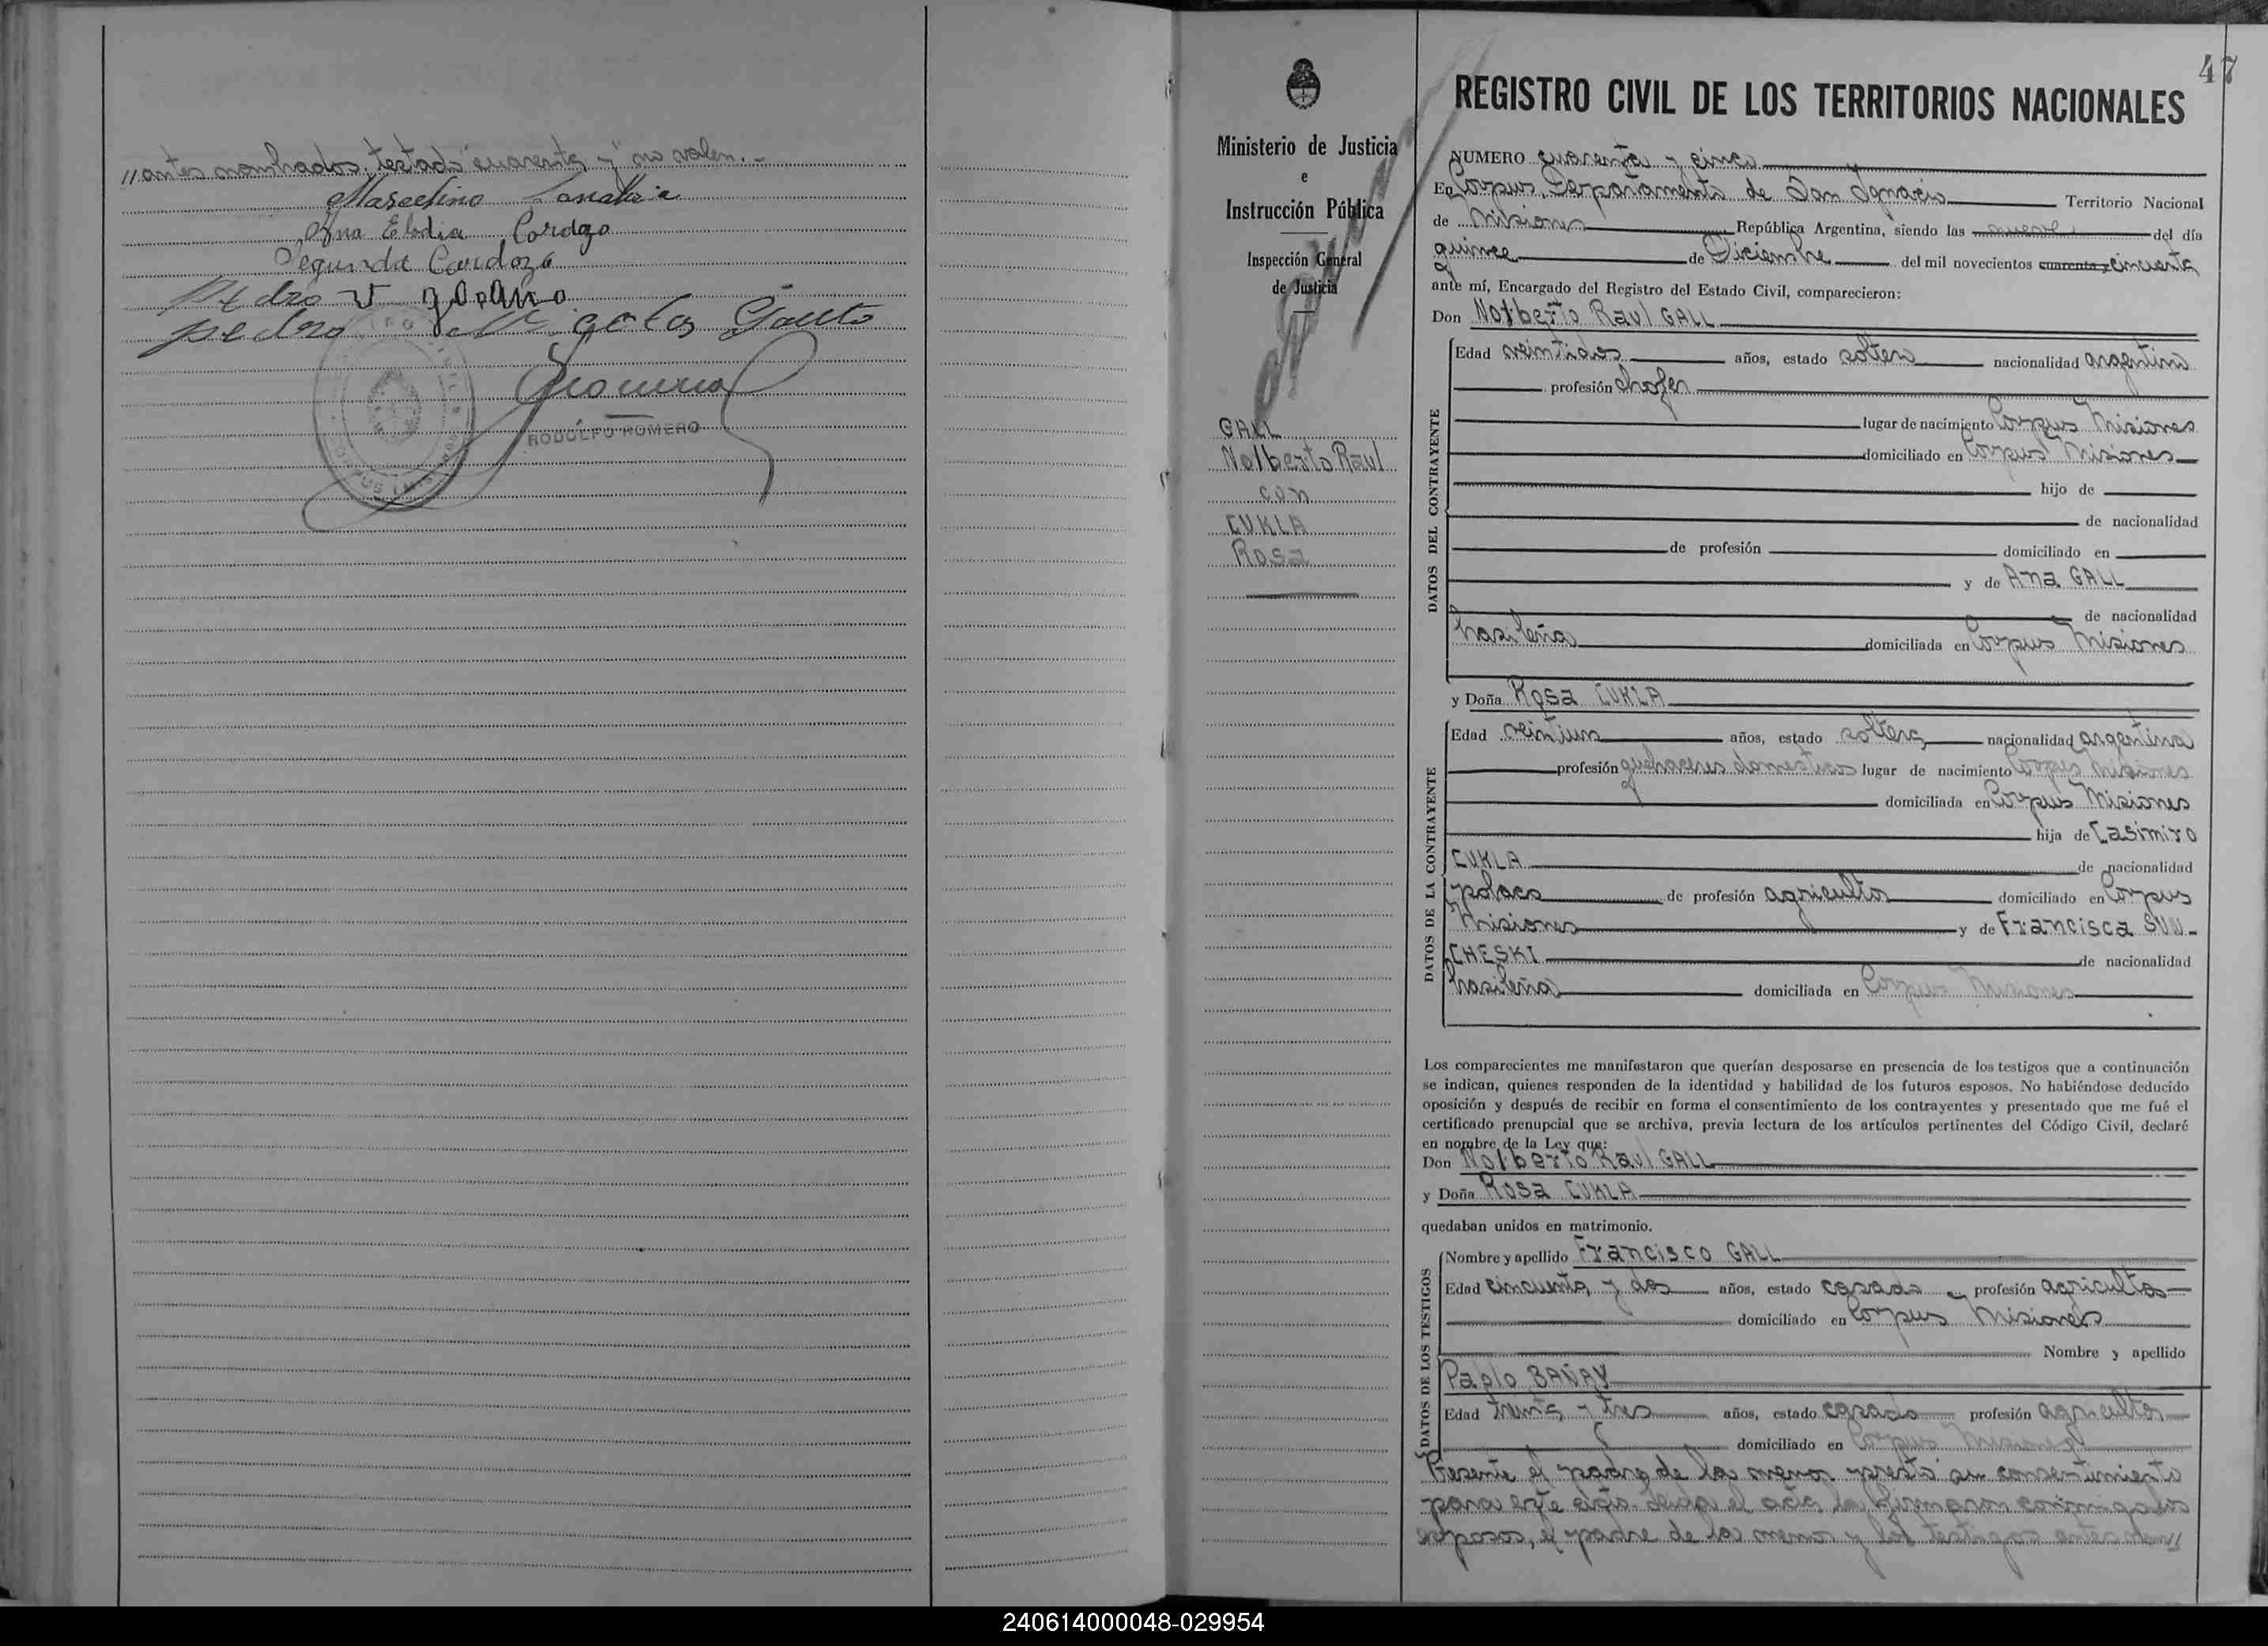 // antes nombrados, testado "cuarenta y" no valen.-
Marcelino
Ana Elodia Cardozo
Segunda Cardozo
Pedro
Pedro Nicolas Gauto
RODOLFO ROMERO
47
Ministerio de Justicia
e
Instrucción Pública
Inspección General
de Justicia
GALL
Nolberto Raul
con
CUKLA
Rosa
REGISTRO CIVIL DE LOS TERRITORIOS NACIONALES
NUMERO cuarenta y cinco
En Corpus, Departamento de San Ignacio Territorio Nacional
de Misiones República Argentina, siendo las nueve del día
quince de Diciembre del mil novecientos cuarenta y cincuenta
ante mí, Encargado del Registro del Estado Civil, comparecieron:
Don Nolberto Raul GALL
DATOS DEL CONTRAYENTE
Edad veintidos años, estado soltero nacionalidad argentino
profesión chofer
lugar de nacimiento Corpus Misiones
domiciliado en Corpus Misiones
hijo de
de nacionalidad
de profesión domiciliado en
y de Ana GALL
de nacionalidad
brasileña domiciliada en Corpus Misiones
y Doña Rosa CUKLA
DATOS DE LA CONTRAYENTE
Edad veintiun años, estado soltera nacionalidad argentina
profesión quehaceres domesticos lugar de nacimiento Corpus Misiones
domiciliada en Corpus Misiones
hija de Casimiro
CUKLA de nacionalidad
polaco de profesión agricultor domiciliado en Corpus
Misiones y de Francisca SUU-
CHESKI de nacionalidad
brasileña domiciliada en Corpus Misiones
Los comparecientes me manifestaron que querían desposarse en presencia de los testigos que a continuación
se indican, quienes responden de la identidad y habilidad de los futuros esposos. No habiéndose deducido
oposición y después de recibir en forma el consentimiento de los contrayentes y presentado que me fué el
certificado prenupcial que se archiva, previa lectura de los artículos pertinentes del Código Civil, declaré
en nombre de la Ley que:
Don Nolberto Raul GALL
y Doña Rosa CUKLA
quedaban unidos en matrimonio.
DATOS DE LOS TESTIGOS
Nombre y apellido Francisco GALL
Edad cincuenta y dos años, estado casado profesión agricultor
domiciliado en Corpus Misiones
Nombre y apellido
Pablo BAÑAY
Edad treinta y tres años, estado casado profesión agricultor
domiciliado en Corpus Misiones
Presente el padre de la menor presta su consentimiento
para este acto. Leida el acta la firmaron conmigo los
esposos, el padre de la menor y los testigos antes nom//
240614000048-029954